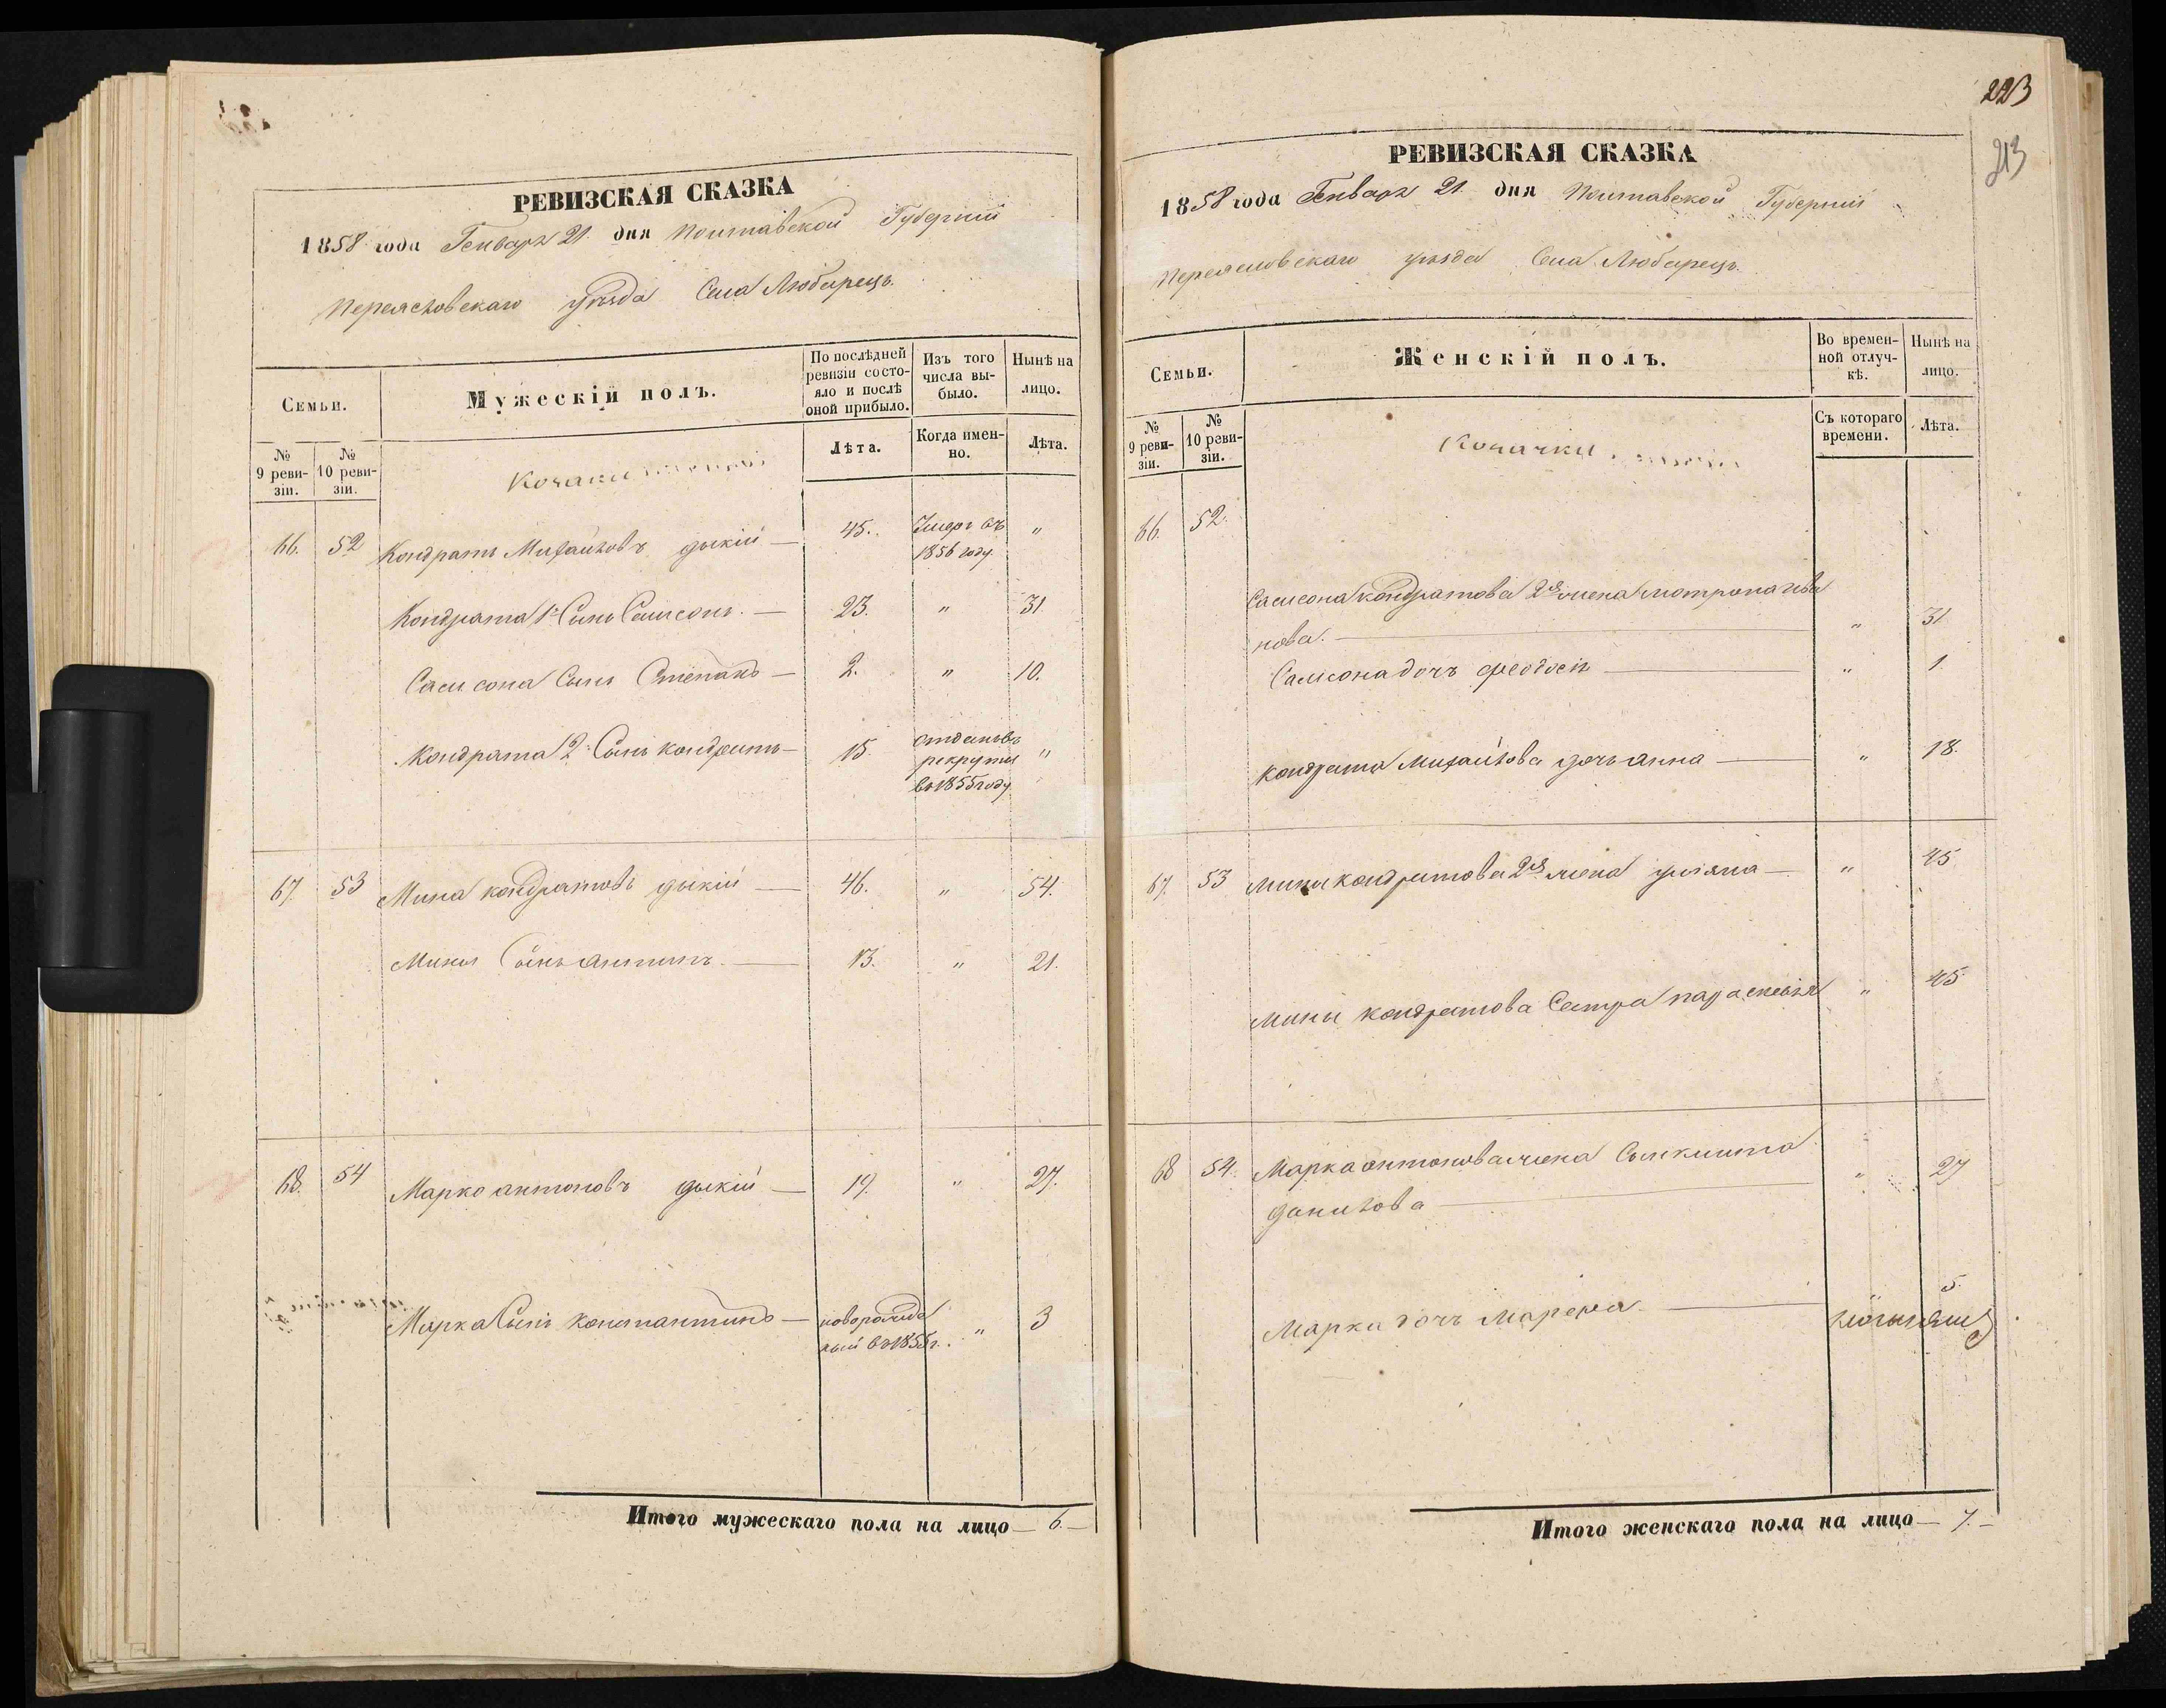 РЕВИЗСКАЯ СКАЗКА
1858 года Генваря 21 дня Полтавской Губернии
Переясловскаго уѣзда Села Любарецъ.
Семьи.
Мужескій полъ.
По послѣдней ревизіи состояло и послѣ оной прибыло.
Изъ того числа выбыло.
Нынѣ на лицо.
№ 9 ревизіи.
№ 10 ревизіи.
Лѣта.
Когда именно.
Лѣта.
Козаки
66. 52 Кондратъ Михайловъ дыкій — 45. Умеръ въ 1856 году "
Кондрата 1й Сынъ Самсонъ. — 23. " 31
Самсона Сынъ Степанъ — 2. " 10.
Кондрата 2й Сынъ кондратъ — 15. отданъ въ рекруты въ 1855 году "
67. 53 Мина кондратовъ дыкій — 46. " 54.
Мины Сынъ антипъ. — 13. " 21.
68. 54 Марко антоновъ дыкій — 19. " 27.
Марка Сынъ константинъ — новорожденый въ 1855 г. " 3
Итого мужескаго пола на лицо — 6. —
223
213
РЕВИЗСКАЯ СКАЗКА
1858 года Генваря 21 дня Полтавской Губерніи
Переясловскаго уѣзда Села Любарецъ.
Семьи.
Женскій полъ.
Во временной отлучкѣ.
Нынѣ на лицо.
№ 9 ревизіи.
№ 10 ревизіи.
Съ котораго времени.
Лѣта.
Козачки
66. 52.
Самсона кондратова 2я жена мотрона
нова. — " 31
Самсона дочъ феодосія — " 1
кондрата Михайлова дочъ анна — " 18.
67. 53 мины кондратова 2я жена уліяна — " 45
мины кондратова Сестра параскевія " 45
68 54. Марка антонова жена Синклита
данилова — " 27
Марка дочъ Марѳма — " 5.
Итого женскаго пола на лицо — 7. —